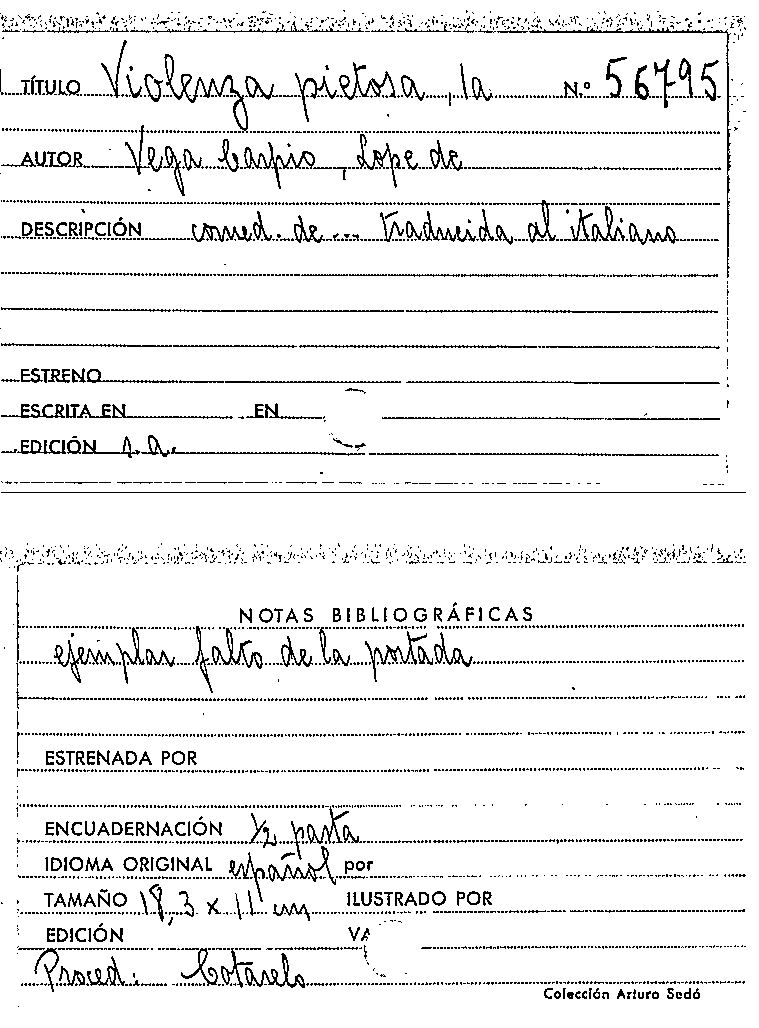 TÍTULO Violenza pietosa, la N.º 56795
AUTOR Vega Carpio, Lope de
DESCRIPCIÓN comed. de ... traducida al italiano
ESTRENO
ESCRITA EN EN
EDICIÓN s.a.
NOTAS BIBLIOGRÁFICAS
ejemplar falto de la portada
ESTRENADA POR
ENCUADERNACIÓN ½ pasta
IDIOMA ORIGINAL español por
TAMAÑO 18,3 x 11 cm ILUSTRADO POR
EDICIÓN VA
Proced: Cotarelo
Colección Arturo Sedó